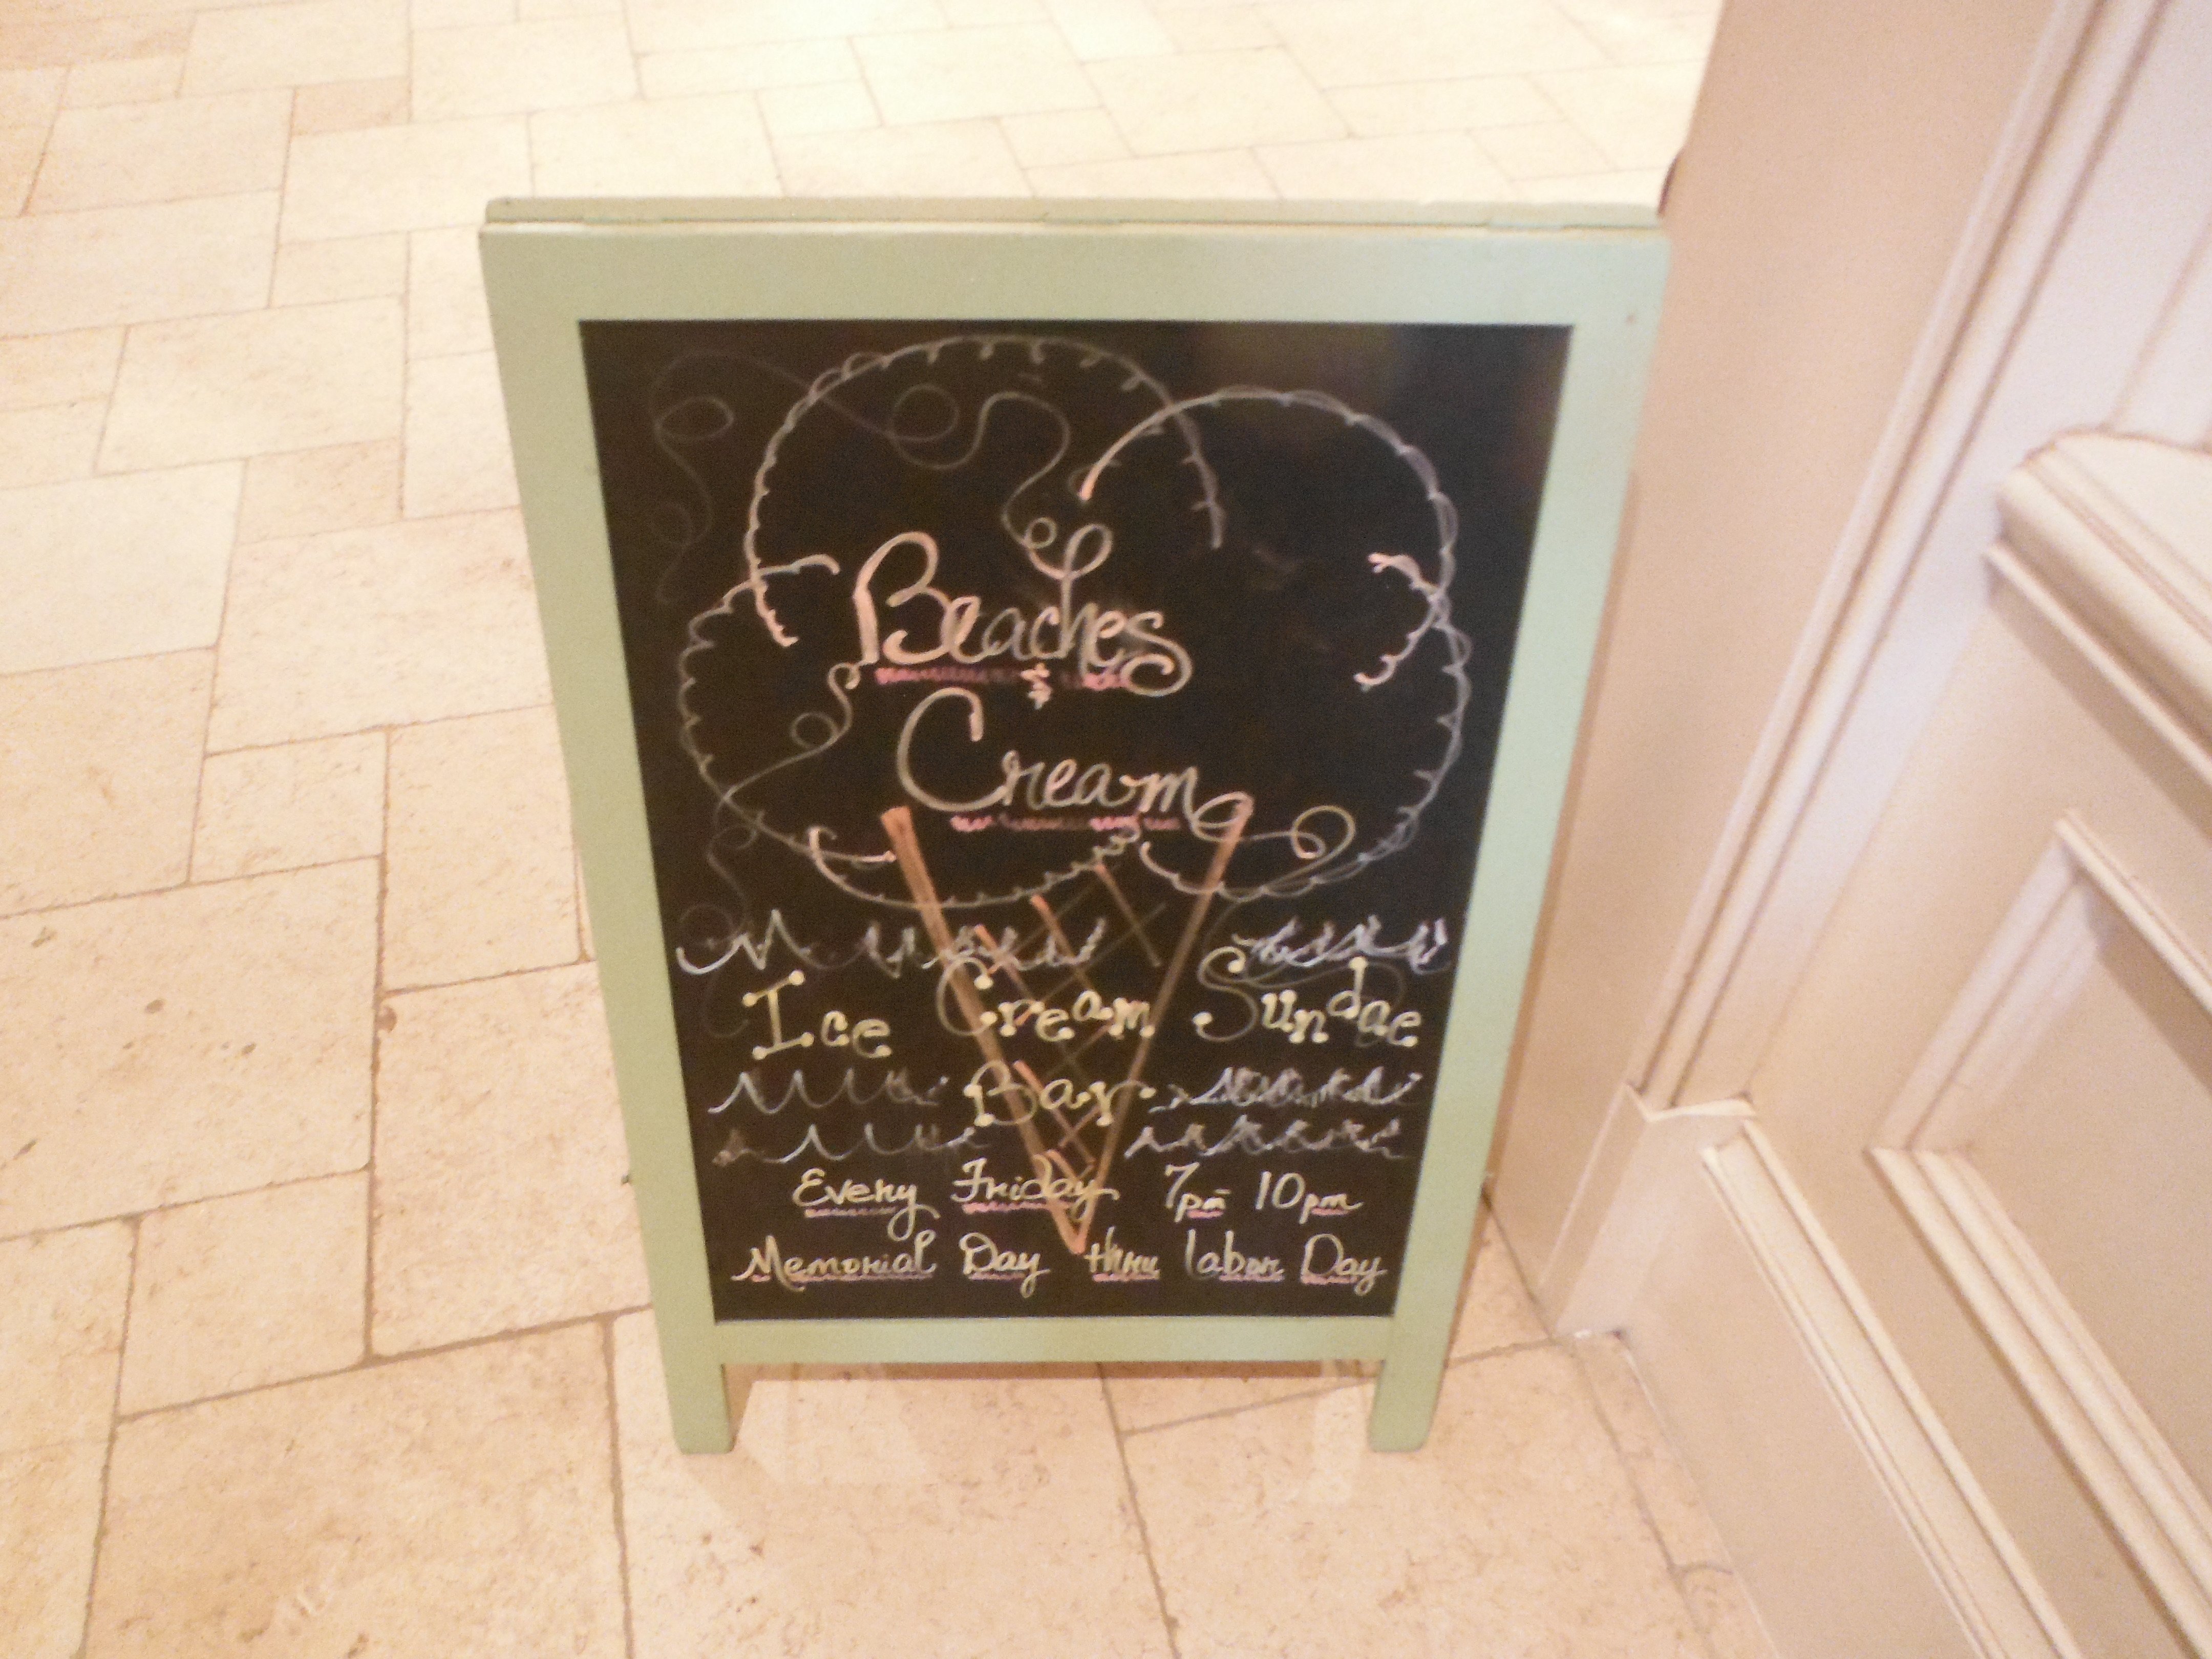 Beaches
&
Cream
Ice Cream Sundae
Bar
Every Friday 7pm 10pm
Memorial Day thru labor Day